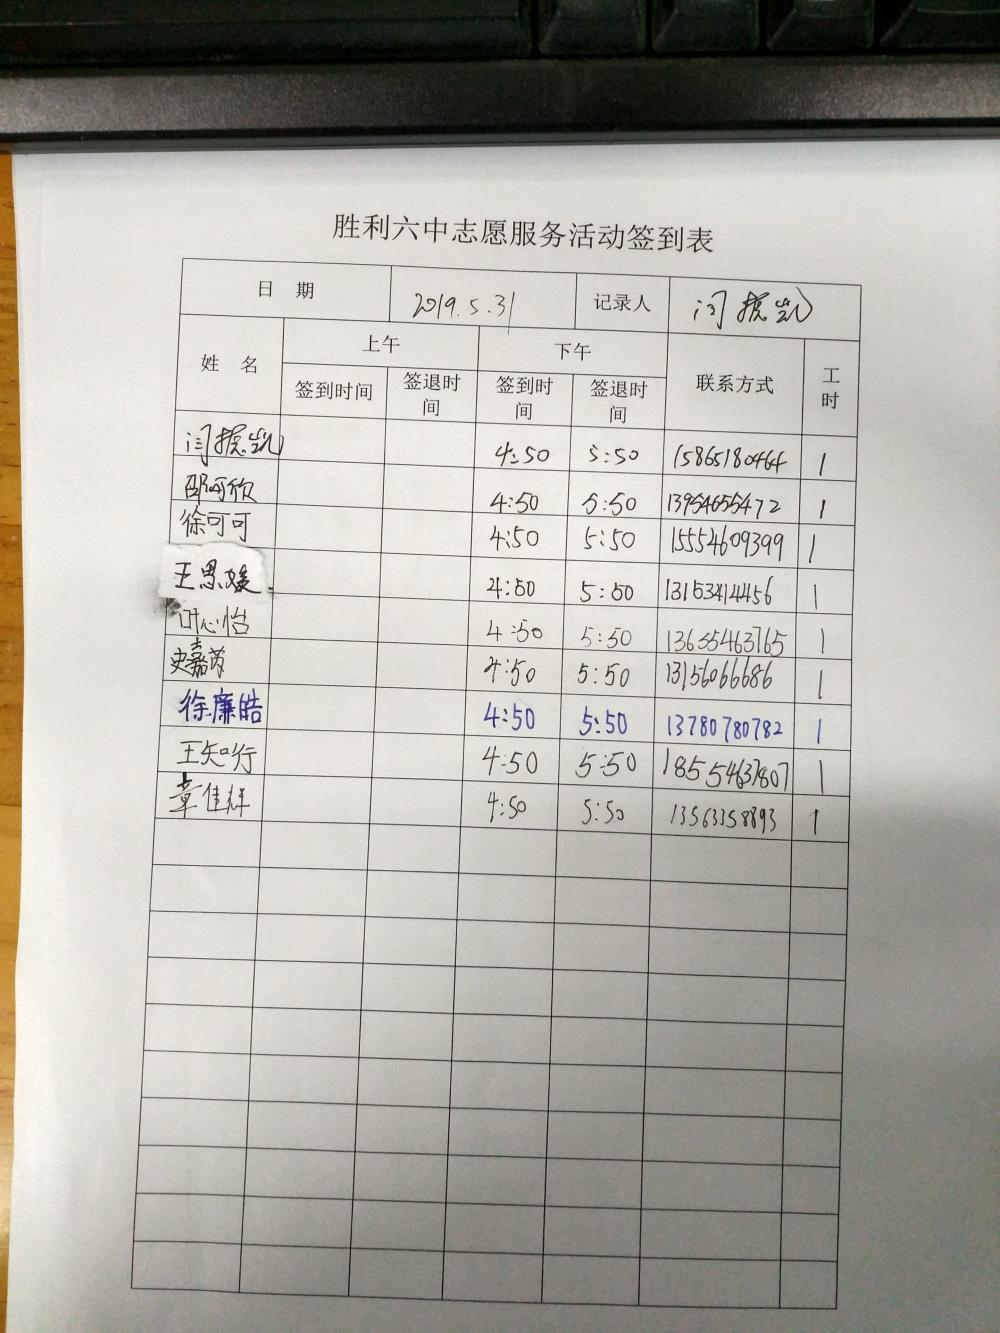 胜利六中志愿服务活动签到表
日 期 2019.5.31 记录人 闫振凯
姓 名 上午 下午 联系方式 工时
签到时间 签退时间 签到时间 签退时间
闫振凯 4:50 5:50 15865180464 1
邵可欣 4:50 5:50 13954655472 1
徐可可 4:50 5:50 15554609399 1
王思媛 4:50 5:50 13153414456 1
叶心怡 4:50 5:50 13655463765 1
史嘉芮 4:50 5:50 13156066686 1
徐廉皓 4:50 5:50 13780780782 1
王知行 4:50 5:50 18554637807 1
章佳祥 4:50 5:50 13563358893 1